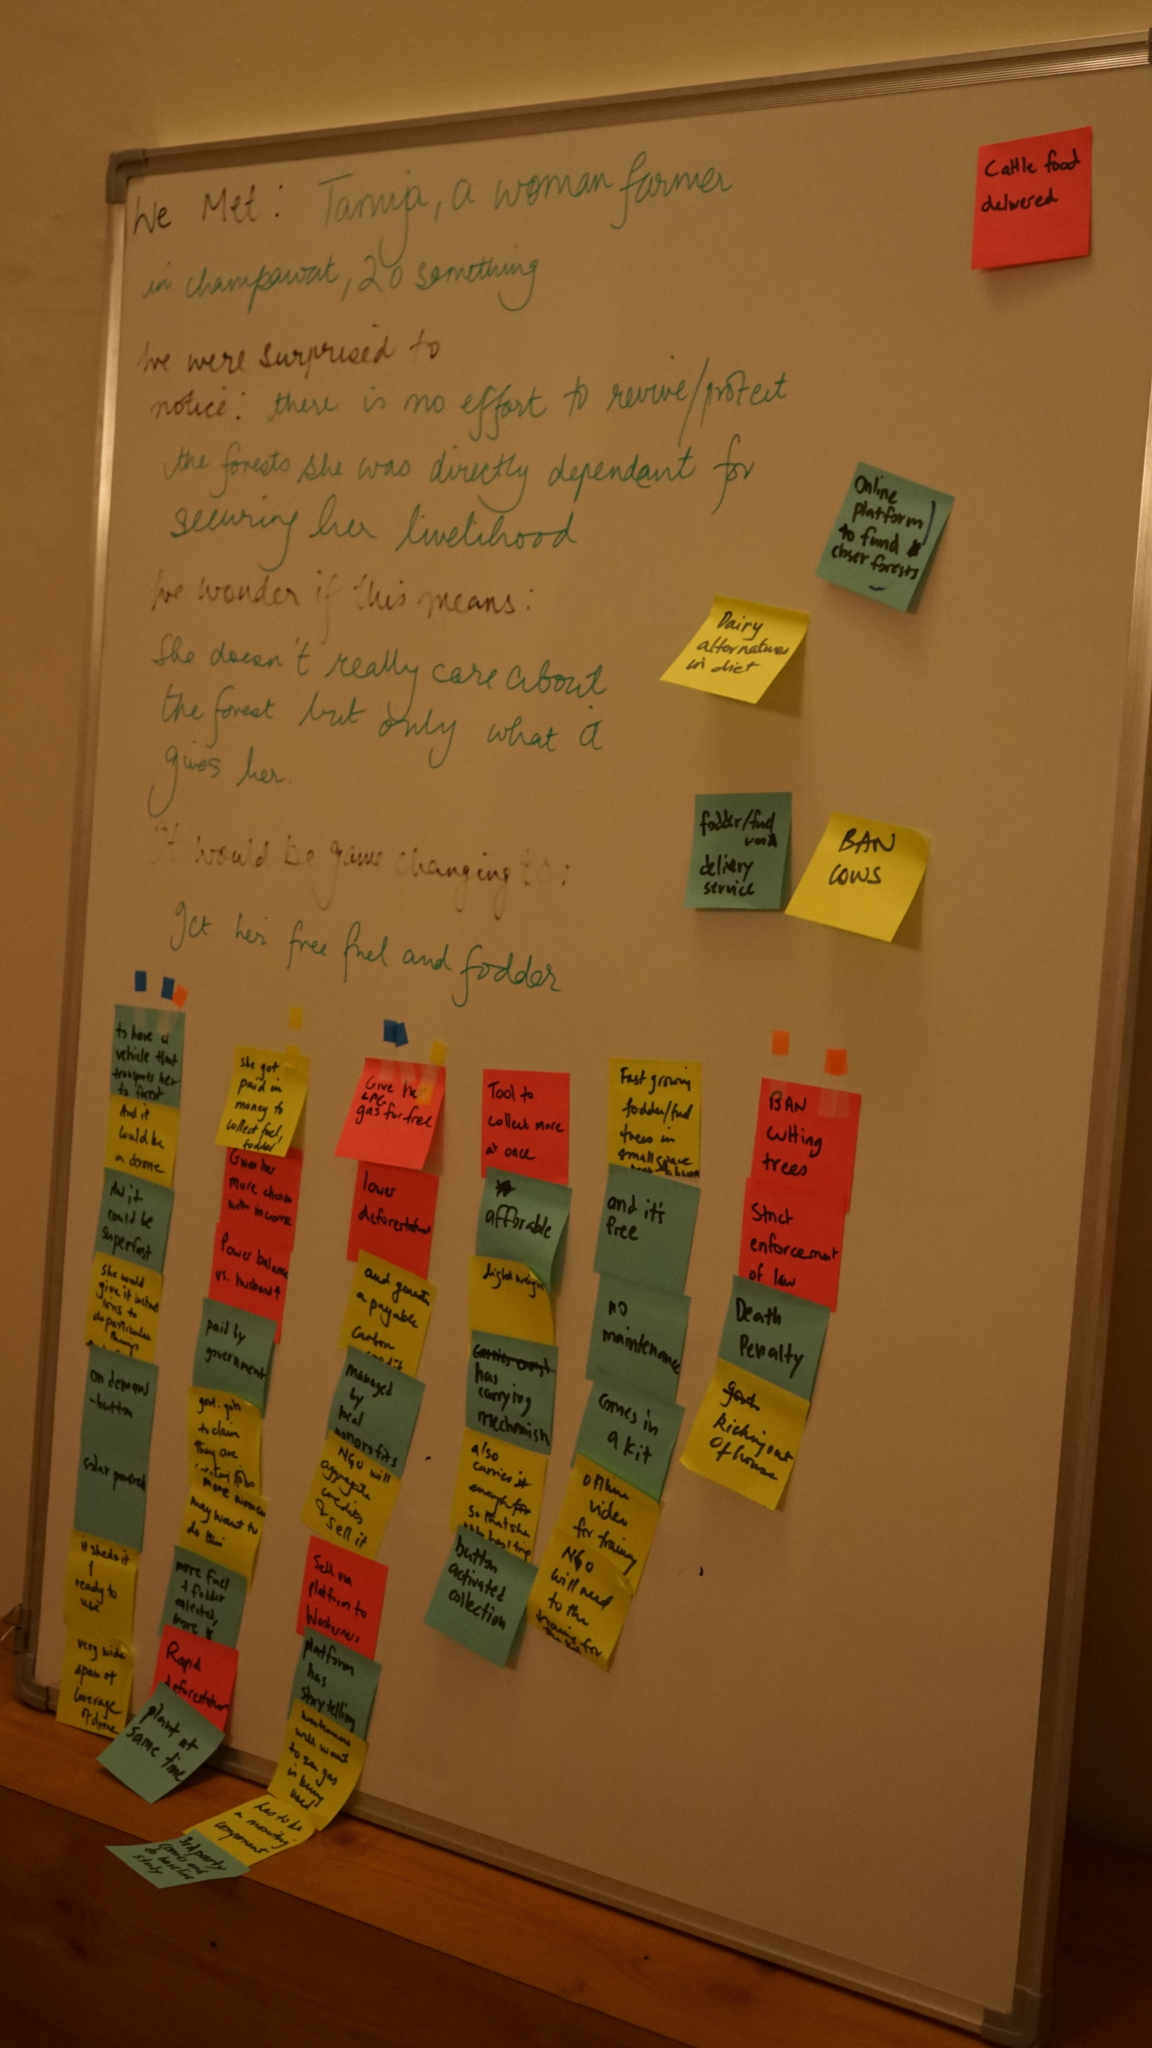 We Met: Tanuja, a woman farmer
in champawat, 20 something
We were surprised to
notice: there is no effort to revive/protect
the forests she was directly dependant for
securing her livelihood
We wonder if this means:
She doesn't really care about
the forest but only what it
gives her.
It would be game changing to:
get her free fuel and fodder
Cattle food
delivered
Online
platform
to fund
closer forests
Dairy
alternatives
in diet
fodder/fuel
wood
delivery
service
BAN
COWS
to have a
vehicle that
transports her
to forest
And it
could be
a drone
And it
could be
superfast
She could
give it
to
do particular
things
on demand
-button
solar powered
it sheds it
&
ready to
use
very wide
span of
coverage
of drone
she got
paid in
money to
collect fuel,
fodder
Gives her
more choices
with income
Power balance
vs. husband
paid by
government
govt. gets
to claim
they are
more women
may want to
do this
more fuel
& fodder
collected,
more
Rapid
deforestation
plant at
same time
Give her
LPG
gas for free
lower
deforestation
and creates
a payable
carbon
credit
managed
by
local
nonprofits
NGO will
aggregate
credits
& sell it
Sell via
platform to
Westerners
platform
has
storytelling
westerners
will want
to see gas
is being
used
has to be
a monitoring
component
3rd party
comes and
do baseline
study
Tool to
collect more
at once
afforable
light weight
has
carrying
mechanism
also
carries it
enough for
so that she
button
activated
collection
Fast growing
fodder/fuel
trees in
small space
and it's
free
no
maintenance
comes in
a kit
offline
video
for training
NGO
will need
to the
training for
BAN
cutting
trees
Strict
enforcement
of law
Death
Penalty
govt.
kicking out
of house